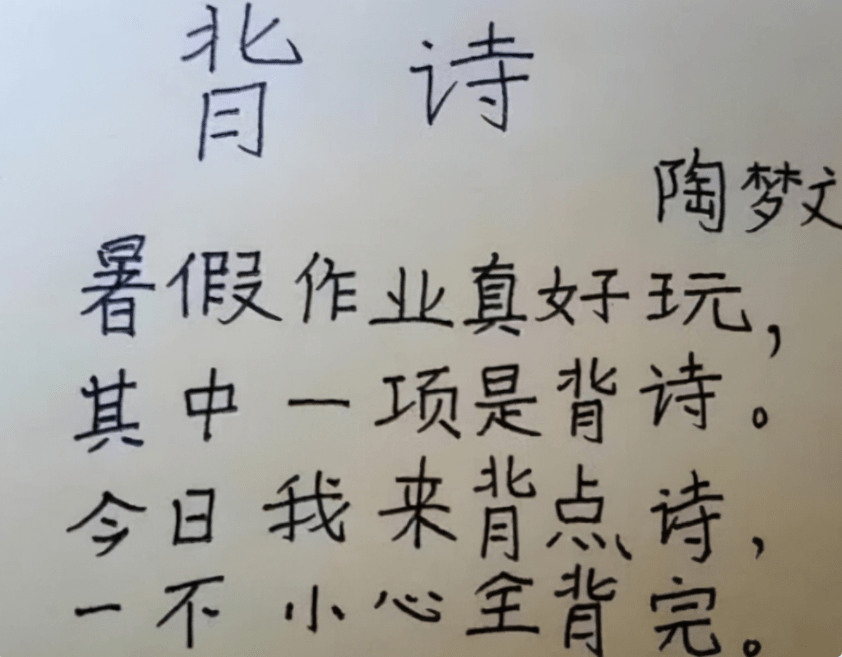 背诗
陶梦文
暑假作业真好玩，
其中一项是背诗。
今日我来背点诗，
一不小心全背完。